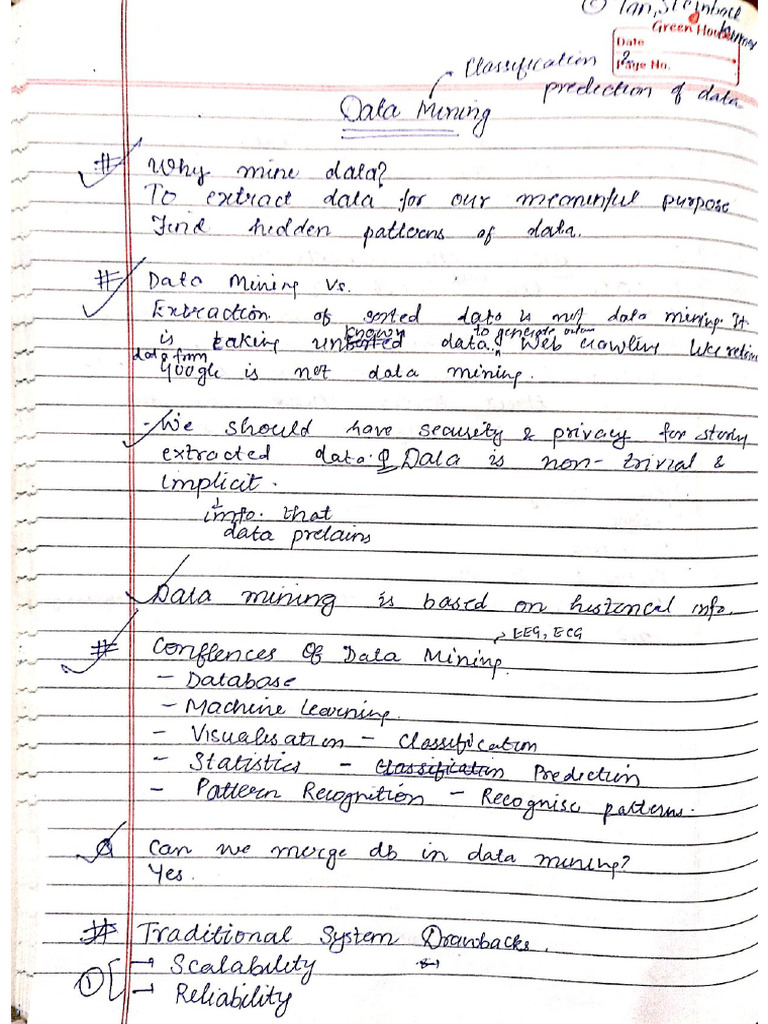 ① Tan, Steinbach
Kumar
Green House
Date
Page No.
Classification
prediction of data
Data Mining
# Why mine data?
To extract data for our meaninful purpose
Find hidden patterns of data.
# Data Mining Vs.
Extraction of sorted data is not data mining. It
is taking unknown data to generate Web crawling like
data from
Google is not data mining.
- We should have security & privacy for study
extracted data. Data is non-trivial &
implicit.
info. that
data pretains
Data mining is based on historical info.
EEG, ECG
# Conflences Of Data Mining.
- Database
- Machine Learning.
- Visualisation - Classification
- Statistics - Classification Prediction
- Pattern Recognition - Recognise patterns.
Q Can we merge db in data mining?
Yes.
# Traditional System Drawbacks.
① → Scalability
→ Reliability